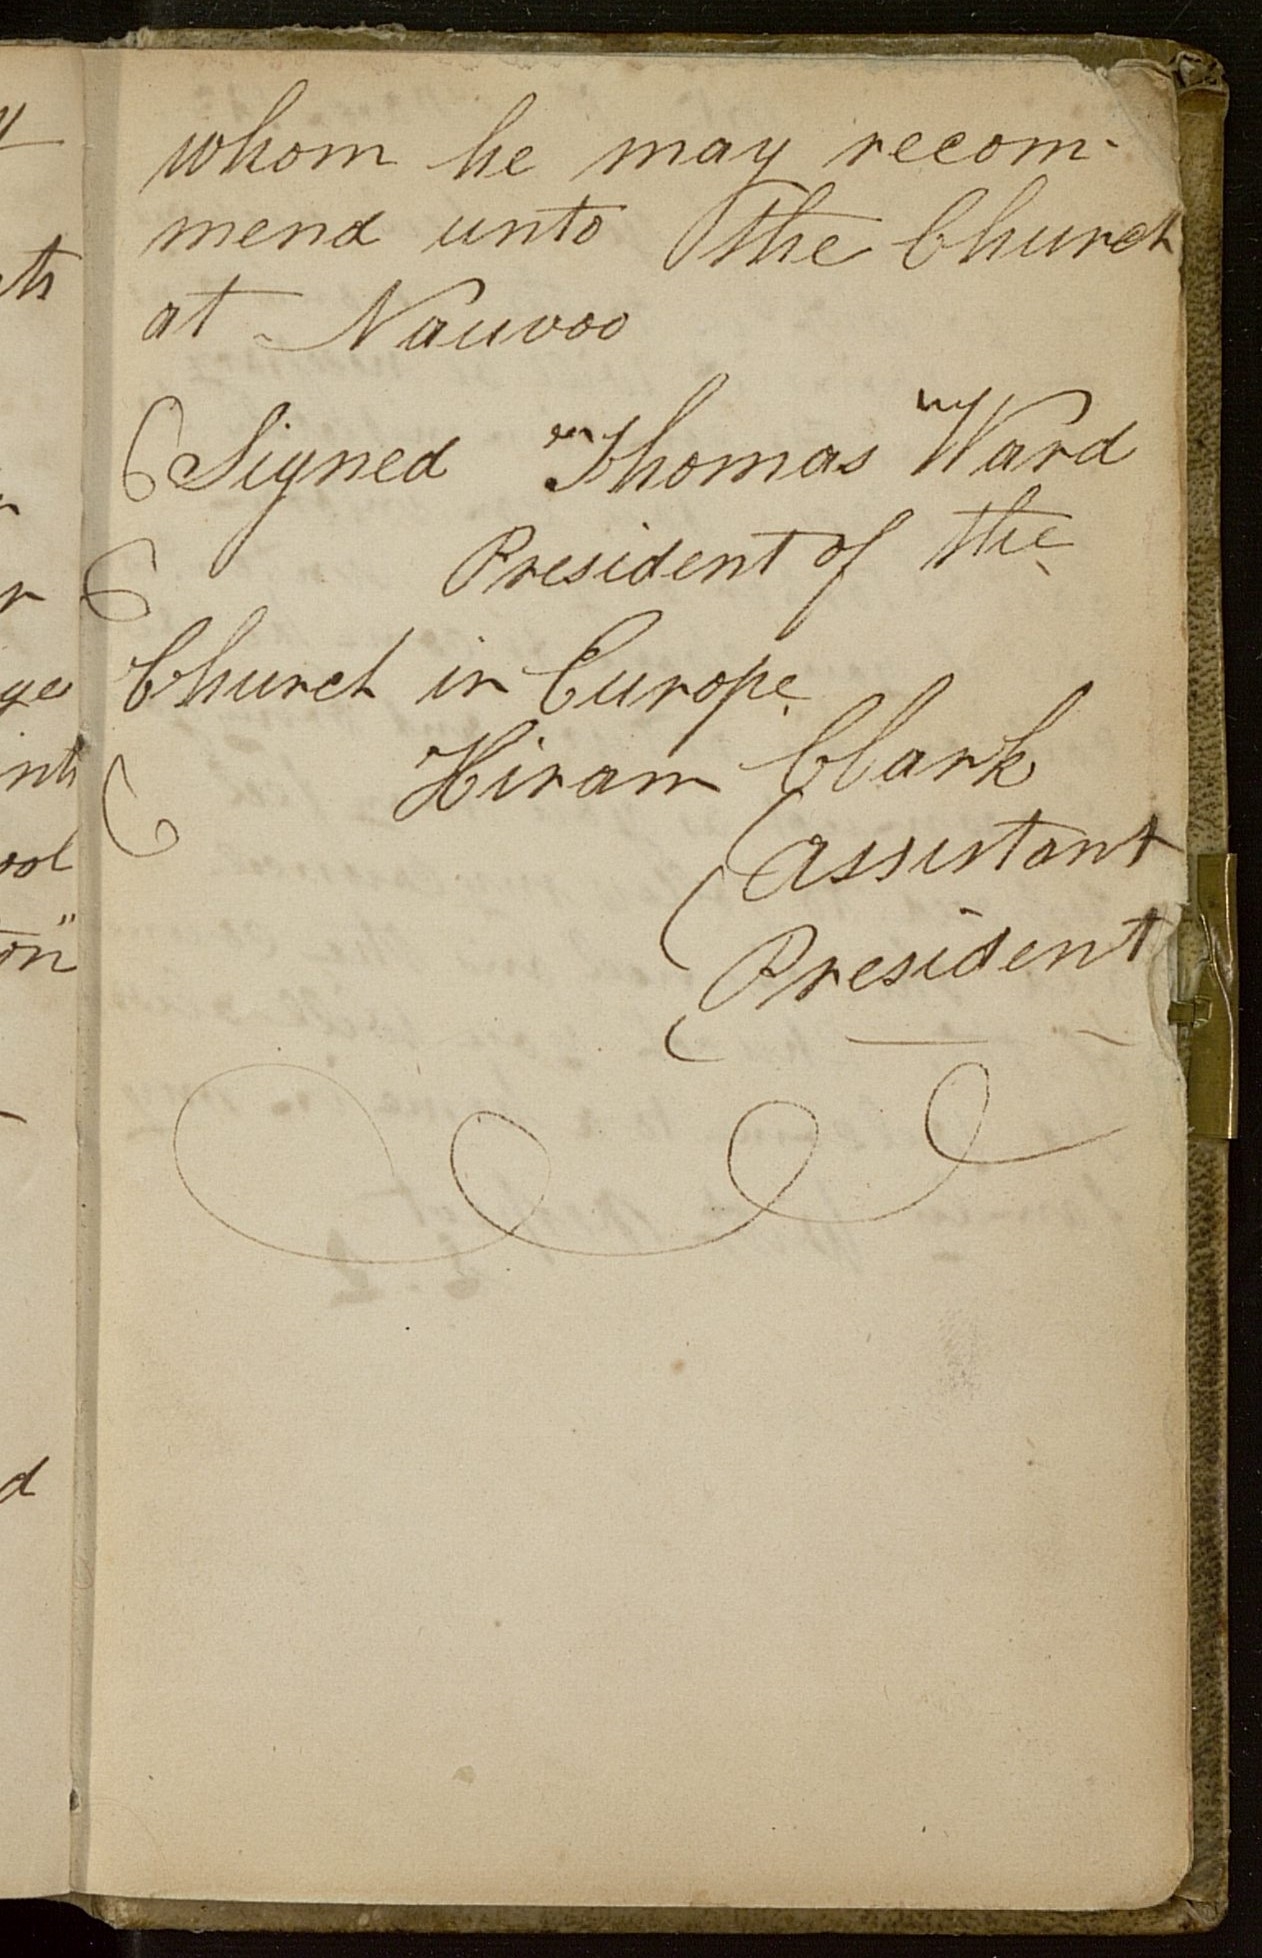 whom he may recom-
mend unto the Church
at Nauvoo
Signed Thomas Ward
President of the
Church in Europe
Hiram Clark
assistant
President